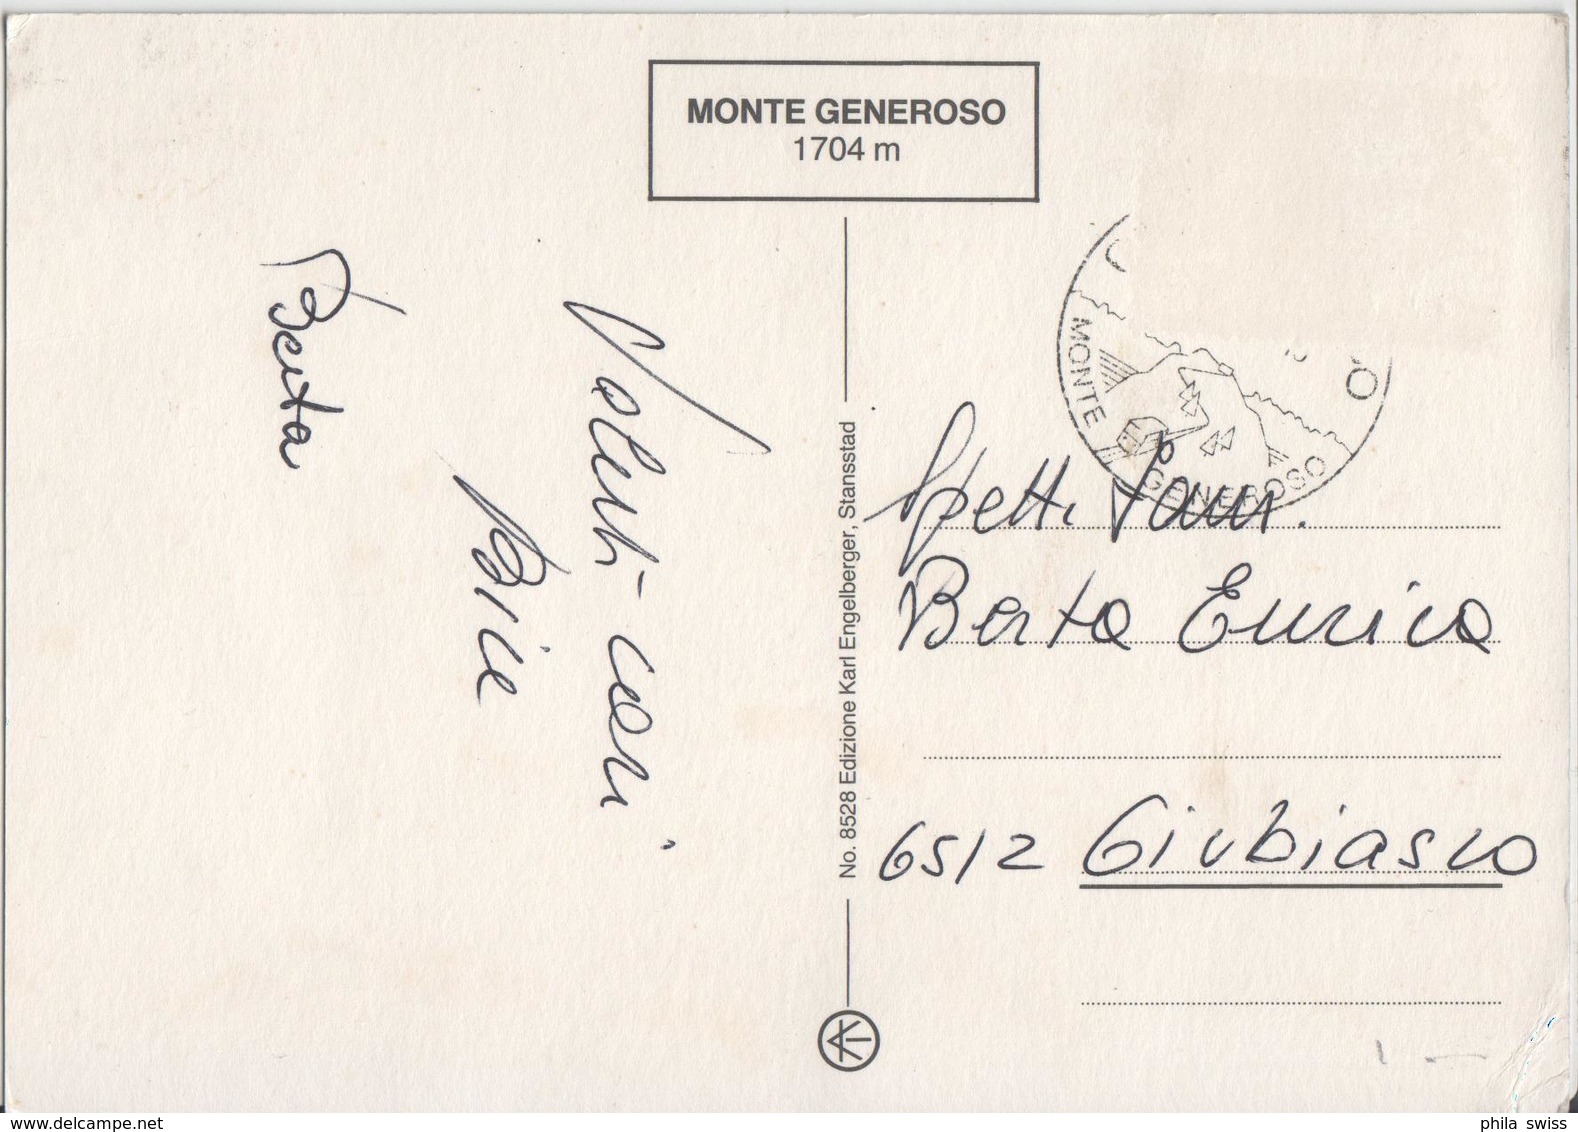 MONTE GENEROSO
1704 m
MONTE
GENEROSO
Saluti cari
Bice
Berta
No. 8528 Edizione Karl Engelberger, Stansstad
Spett. Fam.
Berta Enrico
6512 Giubiasco
phila swiss